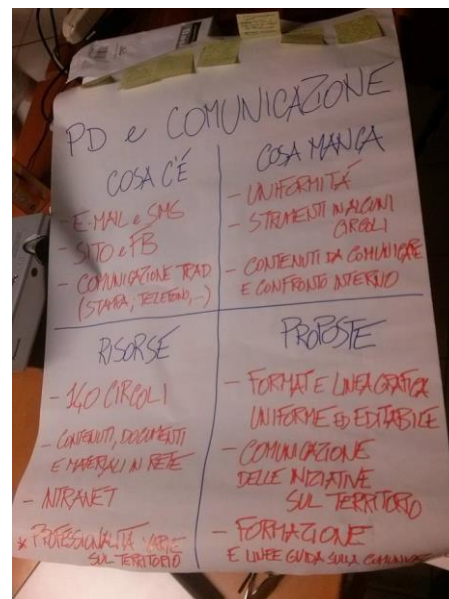 PD e COMUNICAZIONE
COSA C'É
- E-MAIL e SMS
- SITO e FB
- COMUNICAZIONE TRAD.
(STAMPA, TELEFONO,...)
COSA MANCA
- UNIFORMITÁ
- STRUMENTI IN ALCUNI
CIRCOLI
- CONTENUTI DA COMUNICARE
E CONFRONTO INTERNO
RISORSE
- 140 CIRCOLI
- CONTENUTI, DOCUMENTI
E MATERIALI IN RETE
- INTRANET
* PROFESSIONALITÀ VARIE
SUL TERRITORIO
PROPOSTE
- FORMAT E LINEA GRAFICA
UNIFORME ED EDITABILE
- COMUNICAZIONE
DELLE INIZIATIVE
SUL TERRITORIO
- FORMAZIONE
E LINEE GUIDA SULLA